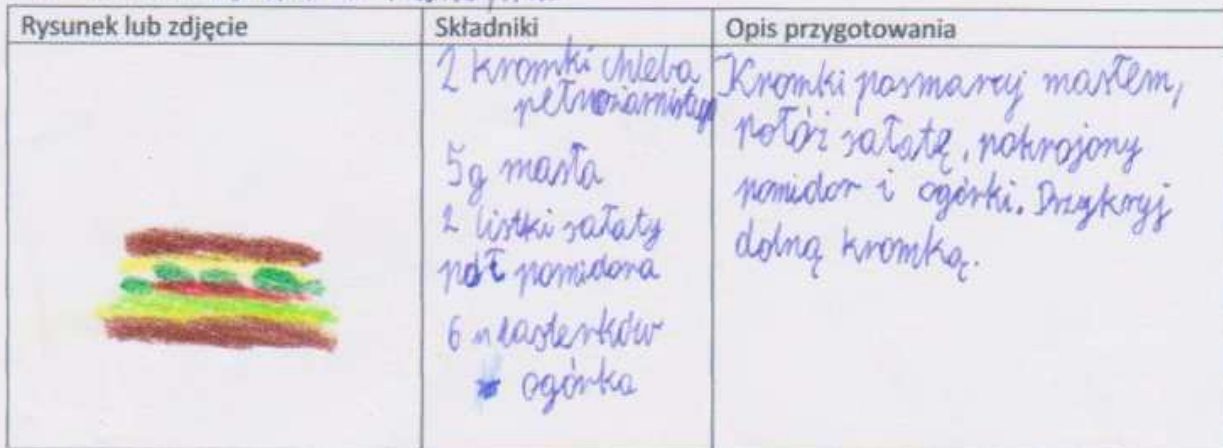 Rysunek lub zdjęcie
Składniki
Opis przygotowania
2 kromki chleba
pełnoziarnistego
5g masła
2 listki sałaty
pół pomidora
6 plasterków
ogórka
Kromki posmaruj masłem,
połóż sałatę, pokrojony
pomidor i ogórki. Przykryj
dolną kromką.